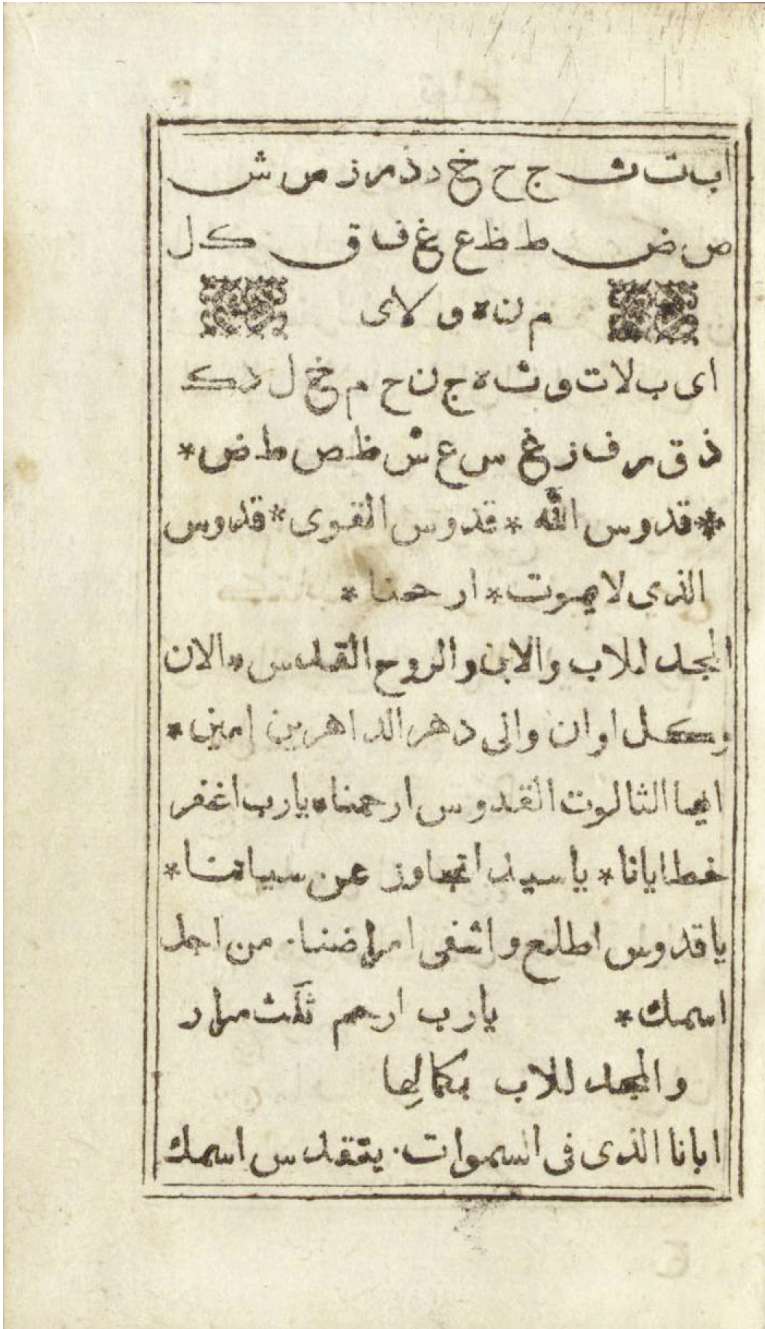 ا ب ت ث ج ح خ د ذ ر ز س ش
ص ض ط ظ ع غ ف ق ك ل
م ن ه و لا ى
ا ى ب لا ت و ث ه ج ن ح م خ ل د ك
ذ ق ر ف ز غ س ع ش ظ ص ط ض *
* قدوس اللّه * قدوس القوى * قدوس
الذى لا يموت * ارحمنا *
المجد للاب والابن والروح القدس * الان
وكل اوان والى دهر الداهرين امين *
ايها الثالوت القدوس ارحمنا * يارب اغفر
خطايانا * ياسيد اتجاوز عن سياتنا *
ياقدوس اطلع واشفى امراضنا · من اجل
اسمك * يارب ارحم ثلث مرار
والمجد للاب بكمالِها
ابانا الذى فى السموات · يتقدس اسمك